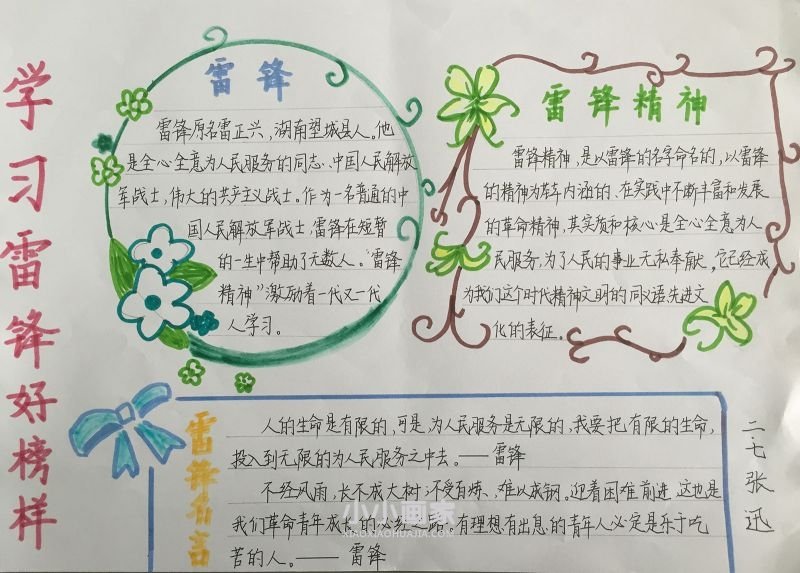 学习雷锋好榜样
雷锋
雷锋原名雷正兴，湖南望城县人。他
是全心全意为人民服务的同志、中国人民解放
军战士，伟大的共产主义战士。作为一名普通的中
国人民解放军战士，雷锋在短暂
的一生中帮助了无数人。“雷锋
精神”激励着一代又一代
人学习。
雷锋精神
雷锋精神，是以雷锋的名字命名的，以雷锋
的精神为基本内涵的、在实践中不断丰富和发展
的革命精神，其实质和核心是全心全意为人
民服务，为了人民的事业无私奉献，它已经成
为我们这个时代精神文明的同义语、先进文
化的表征。
雷锋名言
人的生命是有限的，可是，为人民服务是无限的，我要把有限的生命，
投入到无限的为人民服务之中去。——雷锋
不经风雨，长不成大树；不受百炼、难以成钢。迎着困难前进，这也是
我们革命青年成长的必经之路。有理想有出息的青年人必定是乐于吃
苦的人。——雷锋
二.七张迅
小小画家
XIAOXIAOHUAJIA.COM